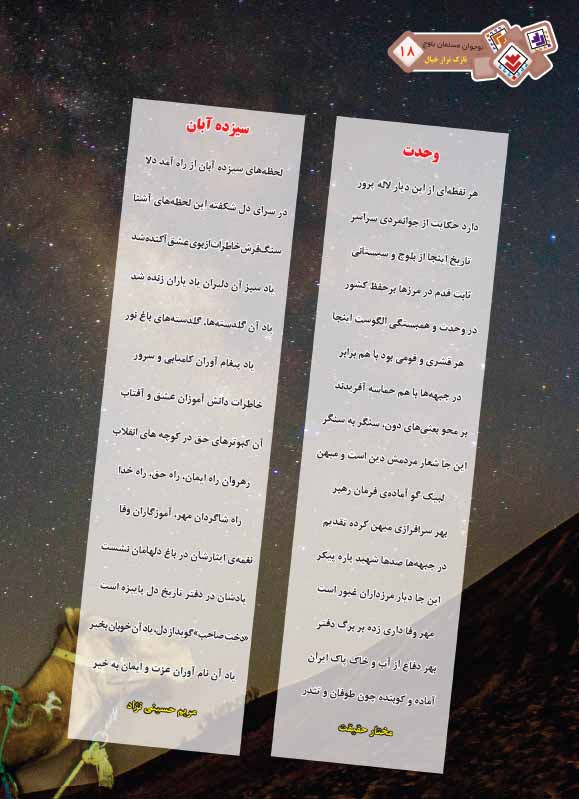 نوجوان مسلمان بلوچ
۱۸
نازک تراز خیال
وحدت
هر نقطه‌ای از این دیار لاله پرور
دارد حکایت از جوانمردی سراسر
تاریخ اینجا از بلوچ و سیستانی
ثابت قدم در مرزها برحفظ کشور
در وحدت و همبستگی الگوست اینجا
هر قشری و قومی بود با هم برابر
در جبهه‌ها با هم حماسه آفریدند
بر محو بعثی‌های دون، سنگر به سنگر
این جا شعار مردمش دین است و میهن
لبیک گو آماده‌ی فرمان رهبر
بهر سرافرازی میهن کرده تقدیم
در جبهه‌ها صدها شهید پاره پیکر
این جا دیار مرزداران غیور است
مهر وفا داری زده بر برگ دفتر
بهر دفاع از آب و خاک پاک ایران
آماده و کوبنده چون طوفان و تندر
مختار حقیقت
سیزده آبان
لحظه‌های سیزده آبان از راه آمد دلا
در سرای دل شکفته این لحظه‌های آشنا
سنگ‌فرش خاطرات از بوی عشق آکنده شد
یاد سبز آن دلیران یاد یاران زنده شد
یاد آن گلدسته‌ها، گلدسته‌های باغ نور
یاد پیغام آوران کامیابی و سرور
خاطرات دانش آموزان عشق و آفتاب
آن کبوترهای حق در کوچه های انقلاب
رهروان راه ایمان، راه حق، راه خدا
راه شاگردان مهر، آموزگاران وفا
نغمه‌ی ایثارشان در باغ دلهامان نشست
یادشان در دفتر تاریخ دل پاییزه است
«دخت صاحب» گوید از دل، یاد آن خوبان بخیر
یاد آن نام آوران عزت و ایمان به خیر
مریم حسینی نژاد